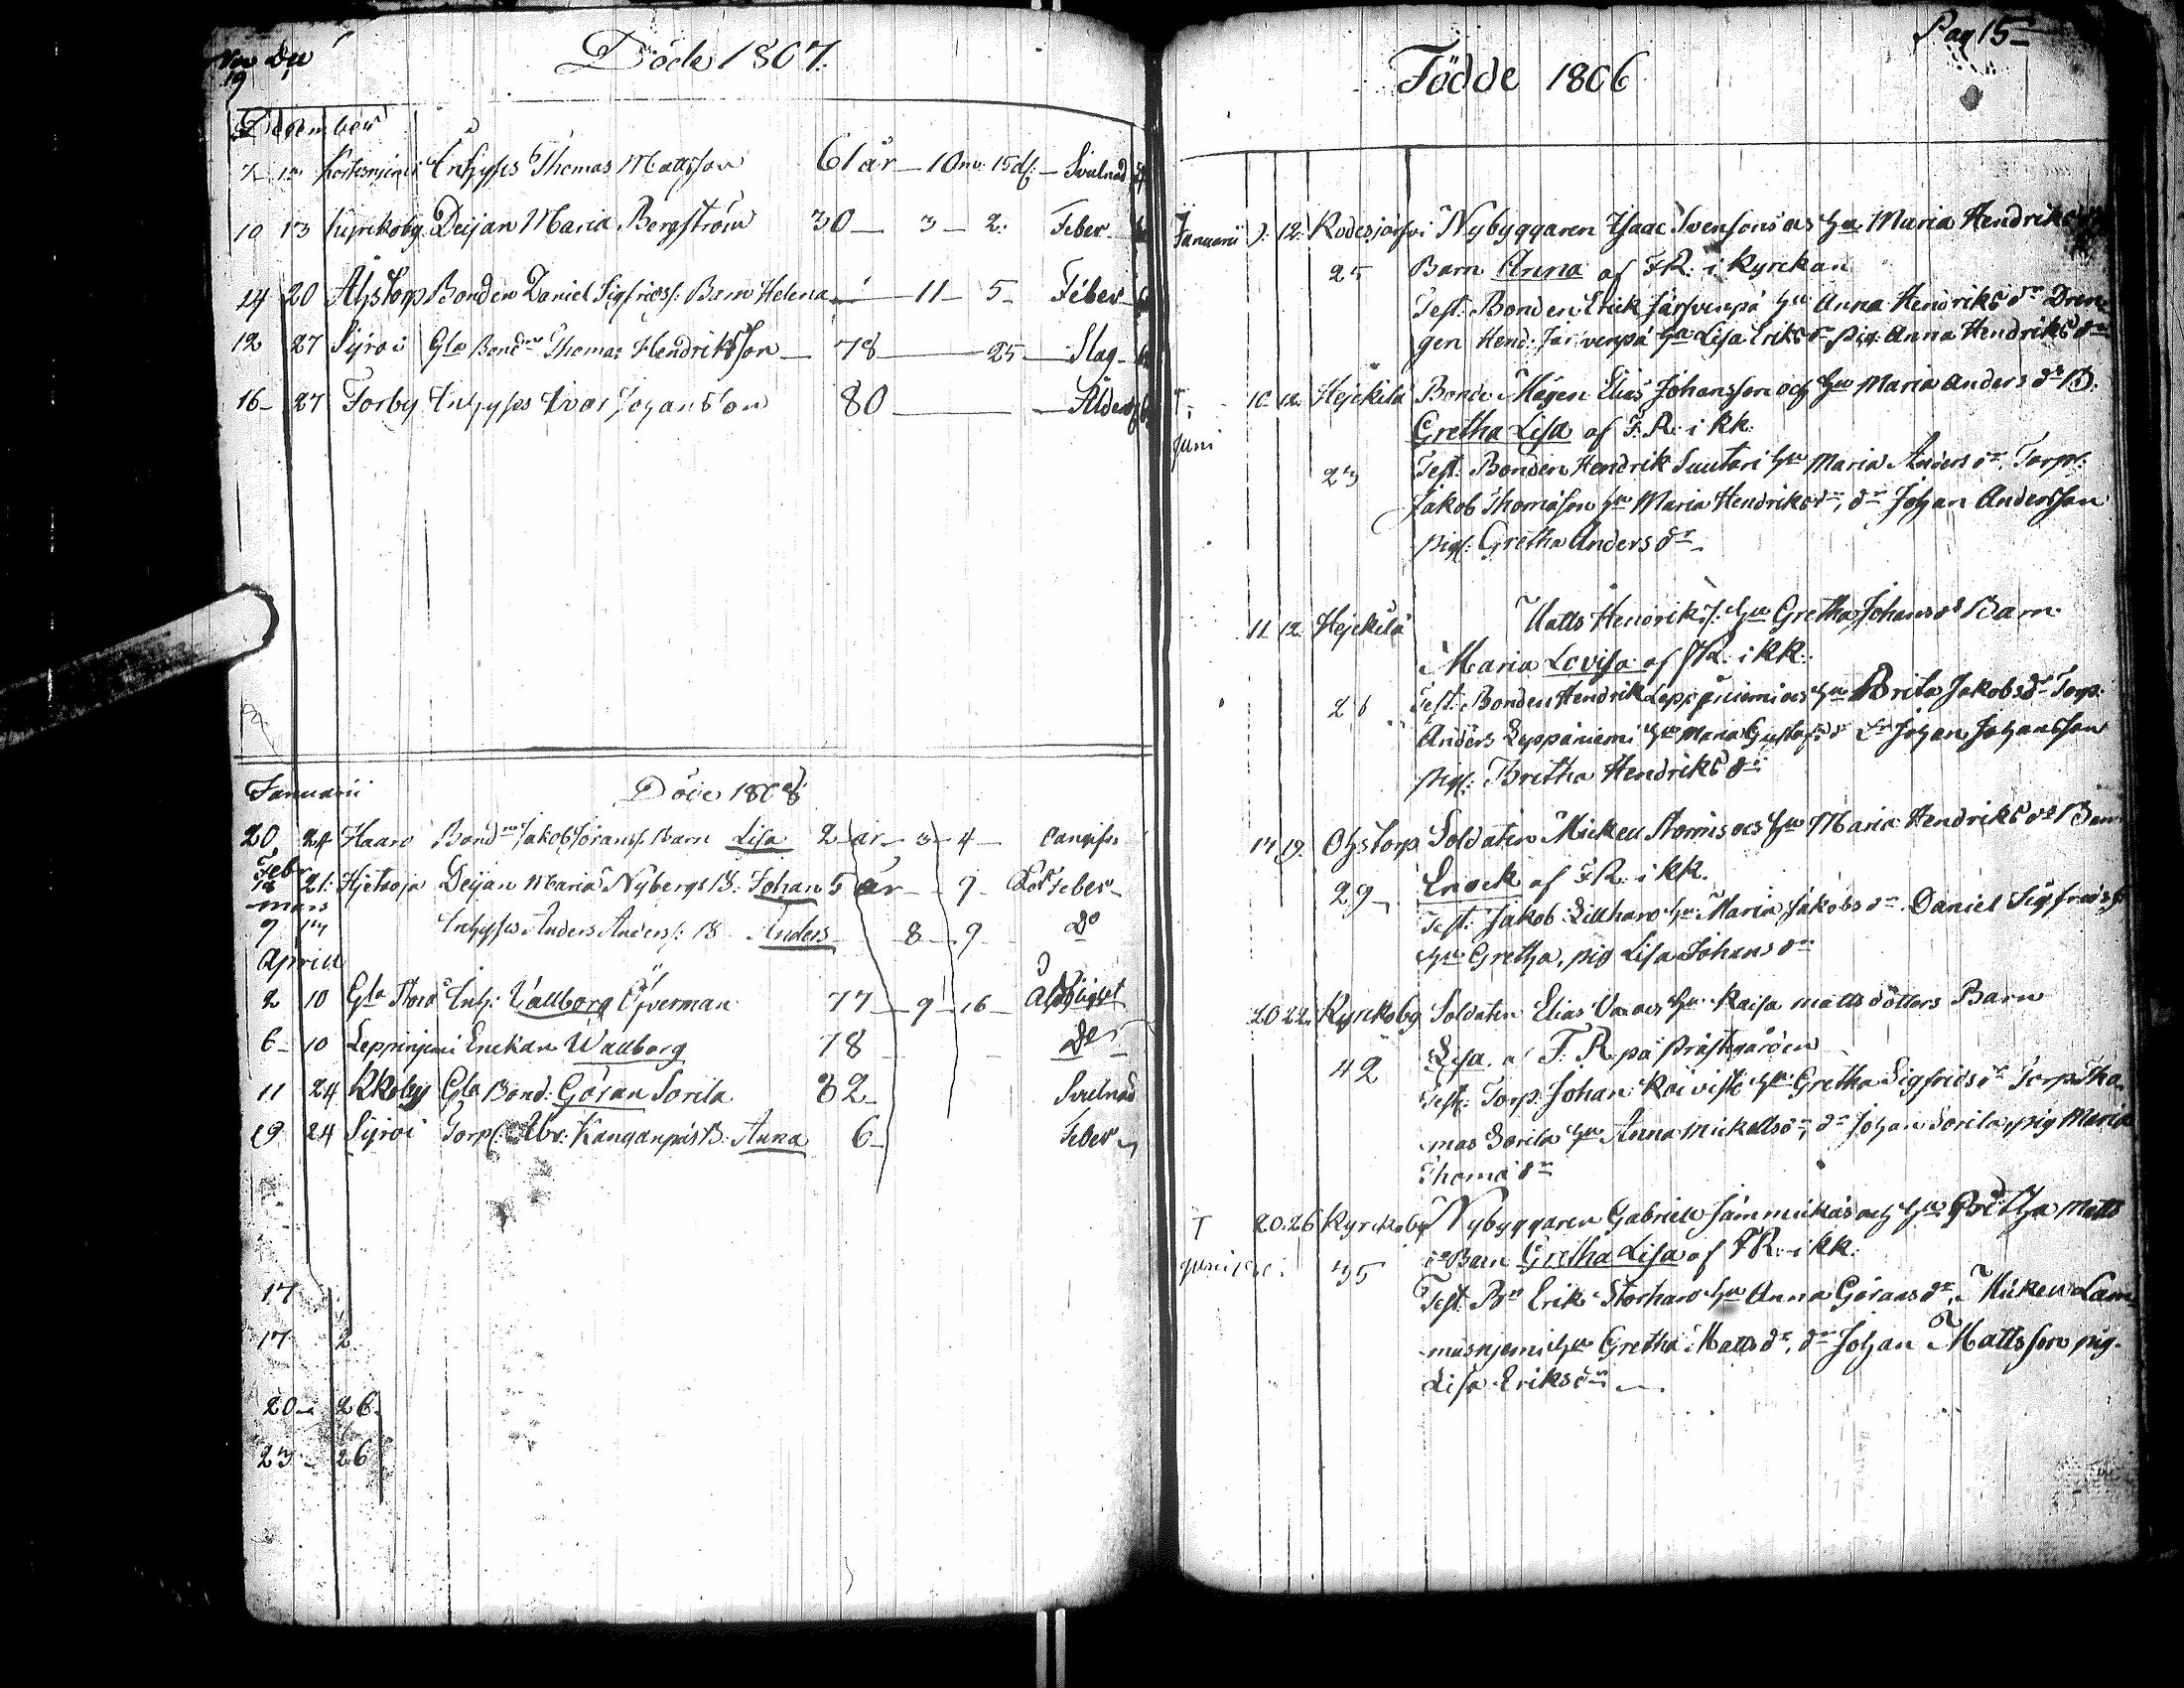 Döde 1807.
December
7 Inhyses Thomas Mattsson 61 år 10 m. 15 d. Svulnad
10 13 Kyrckobg Deijan Maria Bergström 30 3 2. Feber
14 20 Åhstorp Bonden Daniel Sigfridss: Barn Helena 11 5 Feber
12 27 Sijroi Gla Bond Thomas Hendriksson 78 25 Slag
16 27 Forby Inhyses Johansson 80 Ålder
Januarii Döde 1808
20 24 Haaro Bond Jakob Jöranss: Barn Lisa 2 år 3 4
Febr
21: Hjetaoja Deijan Maria Nybergs B: Johan 5 år 9 feber
mars
9 Inhyses Anders Anderss: B Anders 8 9 Do
Aprill
2 10 Gla Inh: Wallborg Öfverman 77 9 16
6 10 Leppinjemi Enckan Wallborg 78 Do
11 24 KKoby Gla Bond: Göran Sorila 82 Svulnad
19 24 Sijroi Torp: Abr: Kanganpäs B: Anna 6 Feber
17
17 2
20 26
23 26
Pag 15
Födde 1806
Januarii 12 Kodesjärfvi Nybyggaren Isaac Svensons och hu Maria Hendriks
25 Barn Anna af F.R. i Kyrckan
Test: Bonden Erick Järfvenpä hu Anna Hendriks dr Dren
gen Hend: Järvenpä hu Lisa Eriks dr pig: Anna Hendriks dr
T 10 12 Hejckilä Bonde Mågen Elias Johansson och hu Maria Anders dr B.
Gretha Lisa af F.R. i KK.
Juni
23 Test: Bonden Hendrik Suutari hu Maria Anders dr Torp:
Jakob Thomasson hu Maria Hendriks dr, dr Johan Andersson
pig: Gretha Anders dr
11 12 Hejckilä Matts Hendriks: hu Gretha Johans dr Barn
Maria Lovisa af F.R. i KK.
26 Test: Bonden Hendrik Leppäniemi och hu Brita Jakobs dr Torp:
Anders Lyopäniemi hu Maria Gustafs dr dr Johan Johansson
pig: Bretha Hendriks dr
17 19 Ohstorp Soldaten Mickell Storms och hu Maria Hendriks dr Barn
29 Enock af F.R. i KK.
Test: Jakob Lillharo hu Maria Jakobs dr Daniel Sigfreds
hu Gretha, pig Lisa Johans dr
20 22 Kyrckobg Soldaten Elias och hu Kaisa matts dotters Barn
42 Lisa af F.R. på Prästgården
Test: Torp: Johan Koivisto hu Gretha Sigfrids dr Torp: Tho
mas Sorila hu Anna Mickells dr, dr Johan Sorila, pig Maria
Thoma dr
T 20 26 Kyrckoby Nybyggaren Gabriell och hu Gretha Matts
dr Barn Gretha Lisa af F.R. i KK.
Juni 35
Test: Bn Erik Storharo hu Anna Görans dr, Mickell Lam
musnjemi hu Gretha Matts dr, dr Johan Mattsson pig.
Lisa Eriks dr